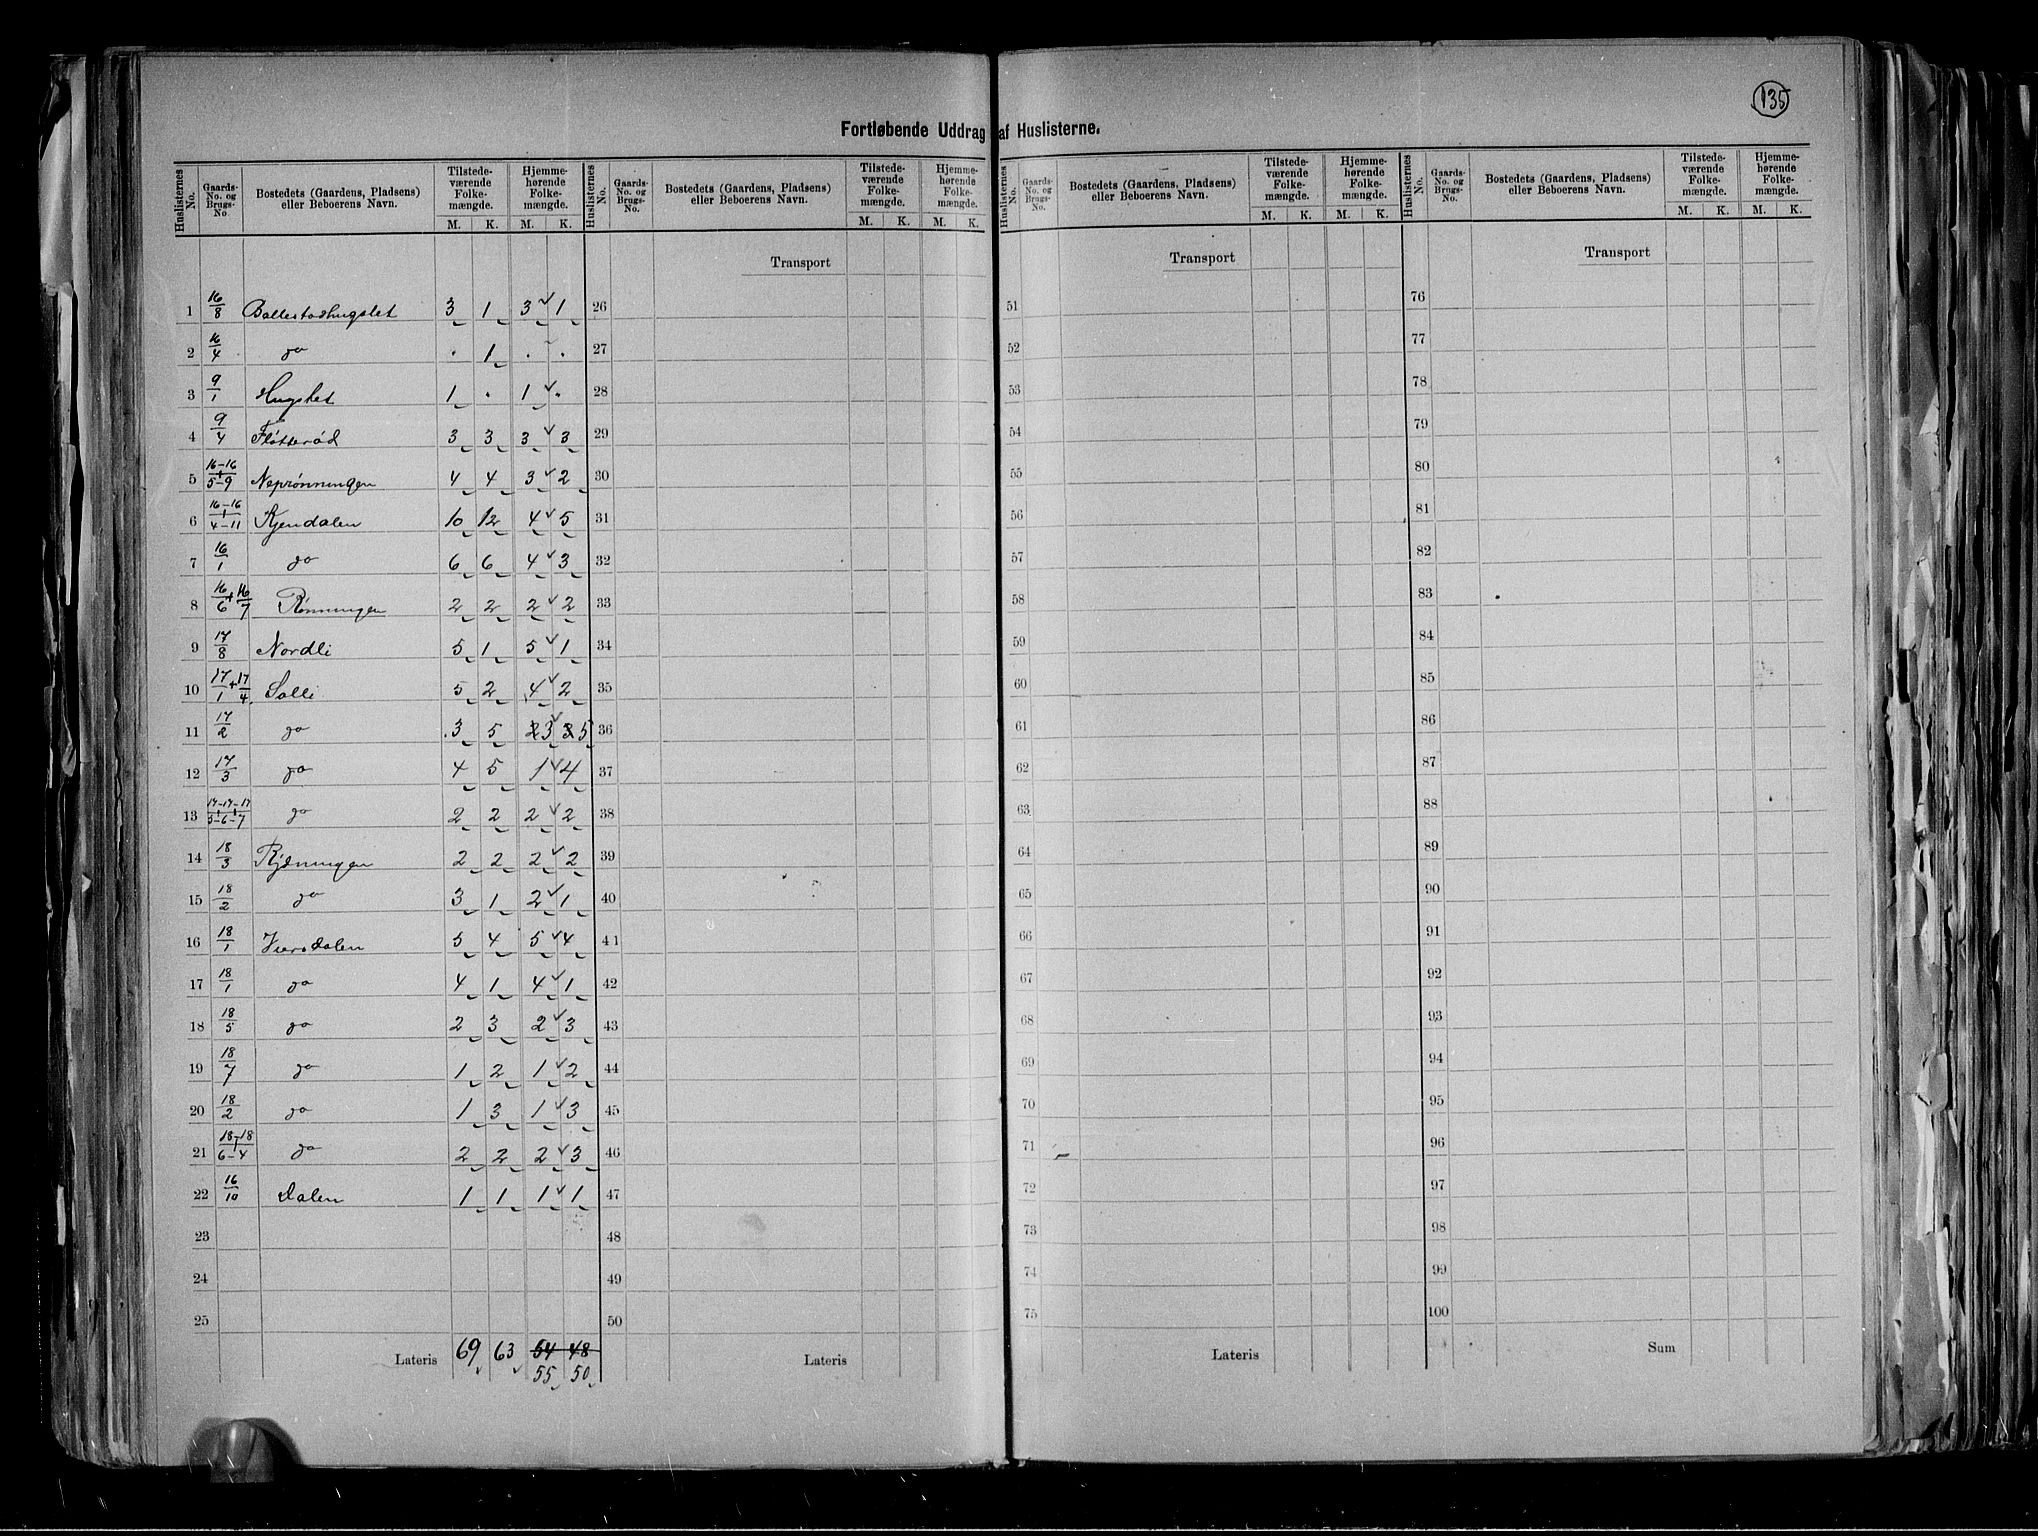 135
Fortløbende Uddrag af Huslisterne.
Huslisternes No. | Gaards-No. og Brugs-No. | Bostedets (Gaardens, Pladsens) eller Beboerens Navn. | Tilstedeværende Folkemængde. M. K. | Hjemmehørende Folkemængde. M. K.
Huslisternes No. | Gaards-No. og Brugs-No. | Bostedets (Gaardens, Pladsens) eller Beboerens Navn. | Tilstedeværende Folkemængde. M. K. | Hjemmehørende Folkemængde. M. K.
Huslisternes No. | Gaards-No. og Brugs-No. | Bostedets (Gaardens, Pladsens) eller Beboerens Navn. | Tilstedeværende Folkemængde. M. K. | Hjemmehørende Folkemængde. M. K.
Huslisternes No. | Gaards-No. og Brugs-No. | Bostedets (Gaardens, Pladsens) eller Beboerens Navn. | Tilstedeværende Folkemængde. M. K. | Hjemmehørende Folkemængde. M. K.
Transport Transport Transport
1 16/8 Ballestadhugslet 3 1 3 1 26 51 76
2 16/4 do . 1 . . 27 52 77
3 9/1 Hugslet 1 . 1 . 28 53 78
4 9/4 Fløtterød 3 3 3 3 29 54 79
5 16-16/5-9 Neprønningen 4 4 3 2 30 55 80
6 16-16/4-11 Kjendalen 10 12 4 5 31 56 81
7 16/1 do 6 6 4 3 32 57 82
8 16/6+16/7 Rønningen 2 2 2 2 33 58 83
9 17/8 Nordli 5 1 5 1 34 59 84
10 17/1+17/4 Solli 5 2 4 2 35 60 85
11 17/2 do 3 5 2 3 3 5 36 61 86
12 17/3 do 4 5 1 4 37 62 87
13 17-17-17/5-6-7 do 2 2 2 2 38 63 88
14 18/3 Kjenningen 2 2 2 2 39 64 89
15 18/2 do 3 1 2 1 40 65 90
16 18/1 Viersdalen 5 4 5 4 41 66 91
17 18/1 do 4 1 4 1 42 67 92
18 18/5 do 2 3 2 3 43 68 93
19 18/7 do 1 2 1 2 44 69 94
20 18/2 do 1 3 1 3 45 70 95
21 18-18/6-4 do 2 2 2 3 46 71 96
22 16/10 Dalen 1 1 1 1 47 72 97
23 48 73 98
24 49 74 99
25 50 75 100
Lateris 69 63 54 48 Lateris Lateris Sum
55 50